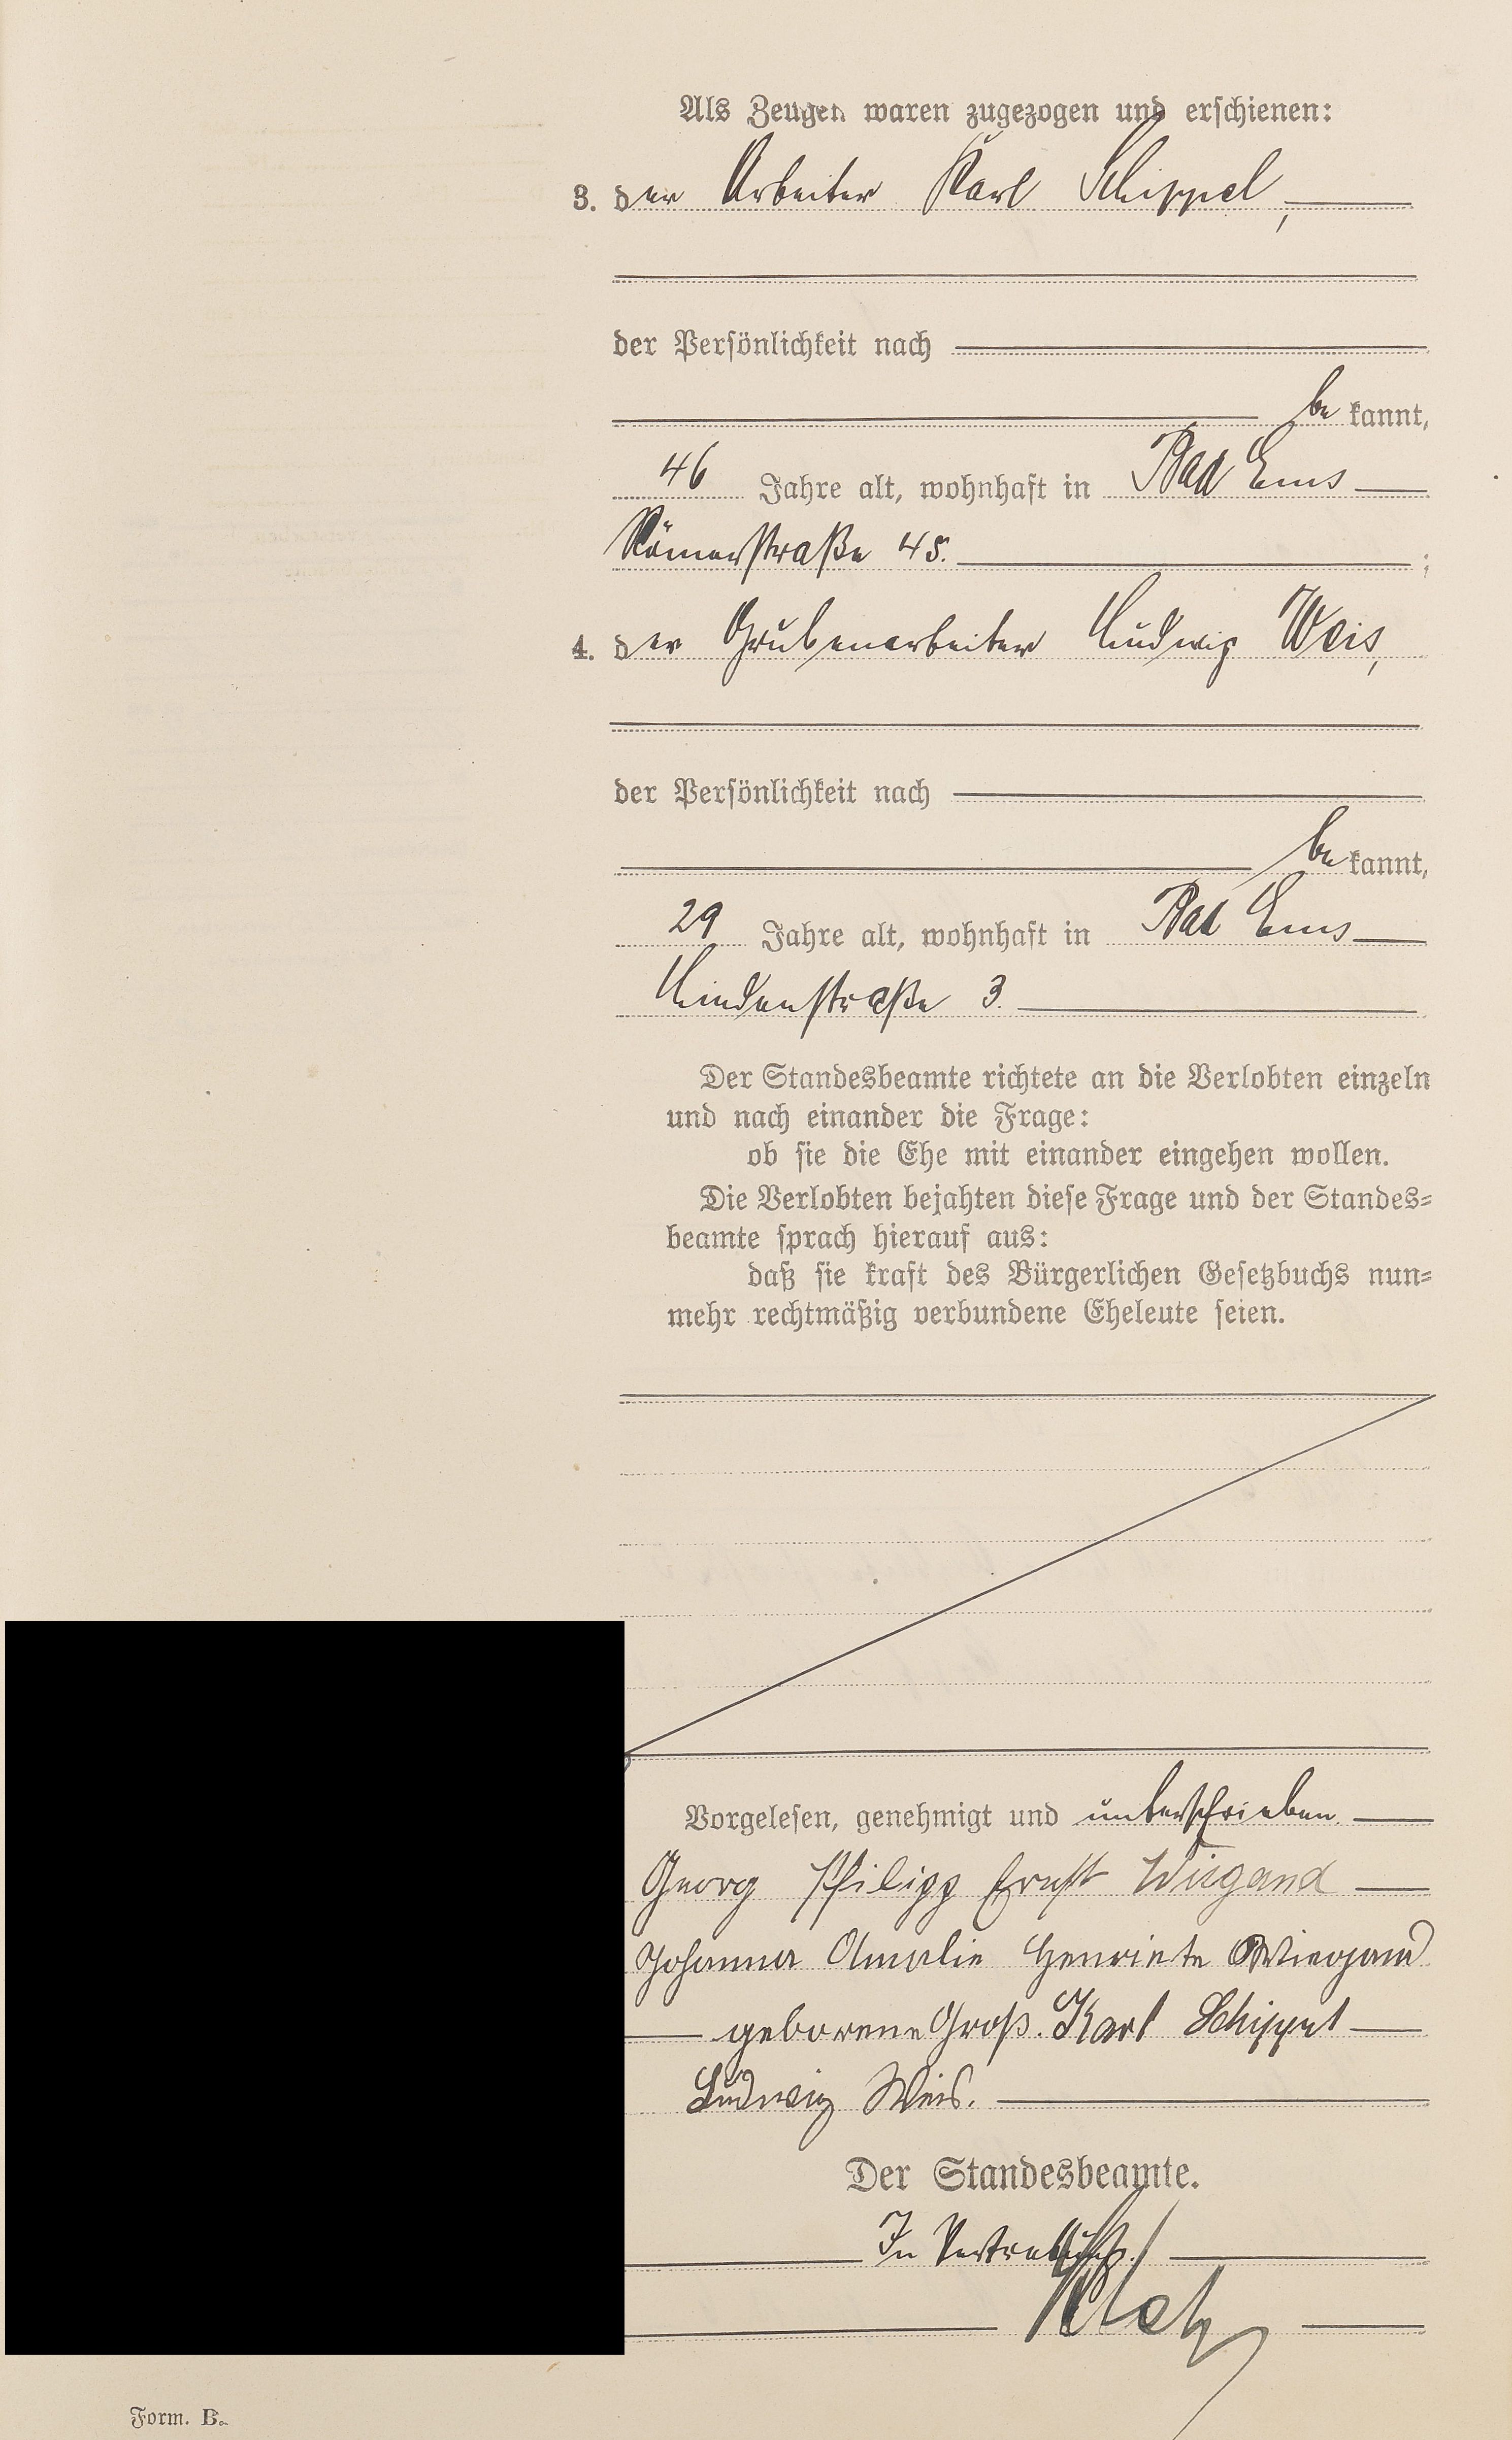 Als Zeugen waren zugezogen und erschienen:
3. der Arbeiter Karl Schippel,
der Persönlichkeit nach
bekannt,
46 Jahre alt, wohnhaft in Bad Ems
Römerstraße 45.;
4. der Grubenarbeiter Ludwig Weis,
der Persönlichkeit nach
bekannt,
29 Jahre alt, wohnhaft in Bad Ems
Lindenstraße 3.
Der Standesbeamte richtete an die Verlobten einzeln
und nach einander die Frage:
ob sie die Ehe mit einander eingehen wollen.
Die Verlobten bejahten diese Frage und der Standes-
beamte sprach hierauf aus:
daß sie kraft des Bürgerlichen Gesetzbuchs nun-
mehr rechtmäßig verbundene Eheleute seien.
Vorgelesen, genehmigt und unterschrieben.
Georg Philipp Ernst Wiegand
Johanna Amalie Henriete Wiegand
geborene Groß. Karl Schippel
Ludwig Weis.
Der Standesbeamte.
In Vertretung.
Form. B.